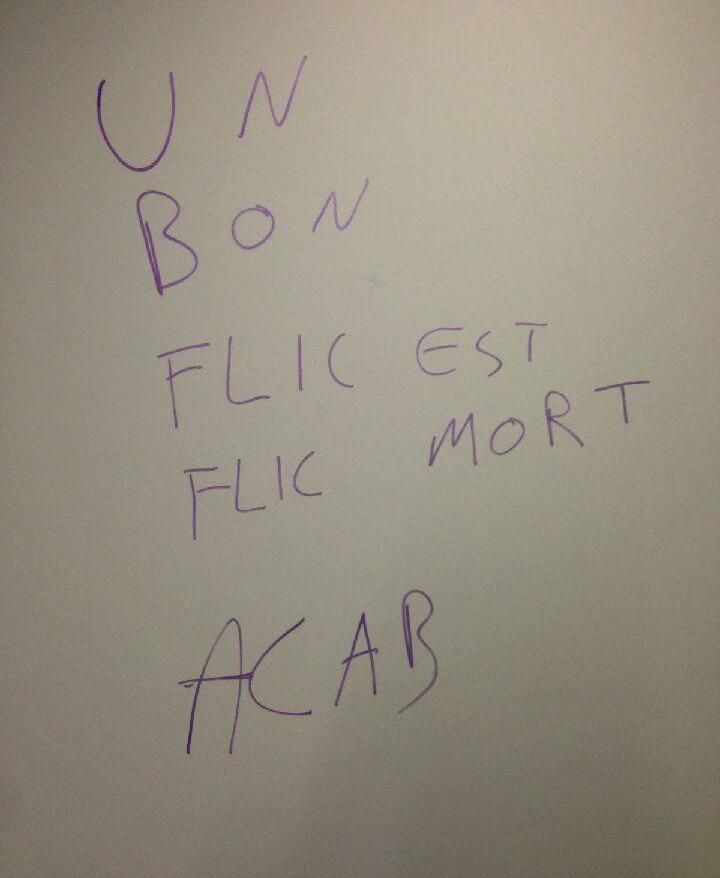 UN
BON
FLIC EST
FLIC MORT
ACAB